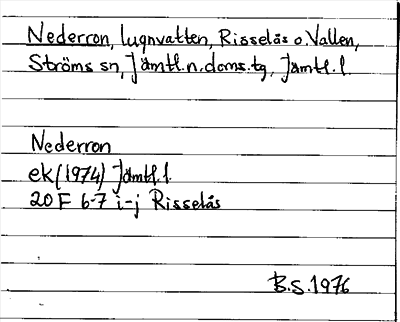 Nederron, lugnvatten, Risselås o. Vallen,
Ströms sn, Jämtl.n.doms.tg, Jämtl.l.
Nederron
ek(1974) Jämtl.l.
20 F 6-7 i-j Risselås
B.S.1976